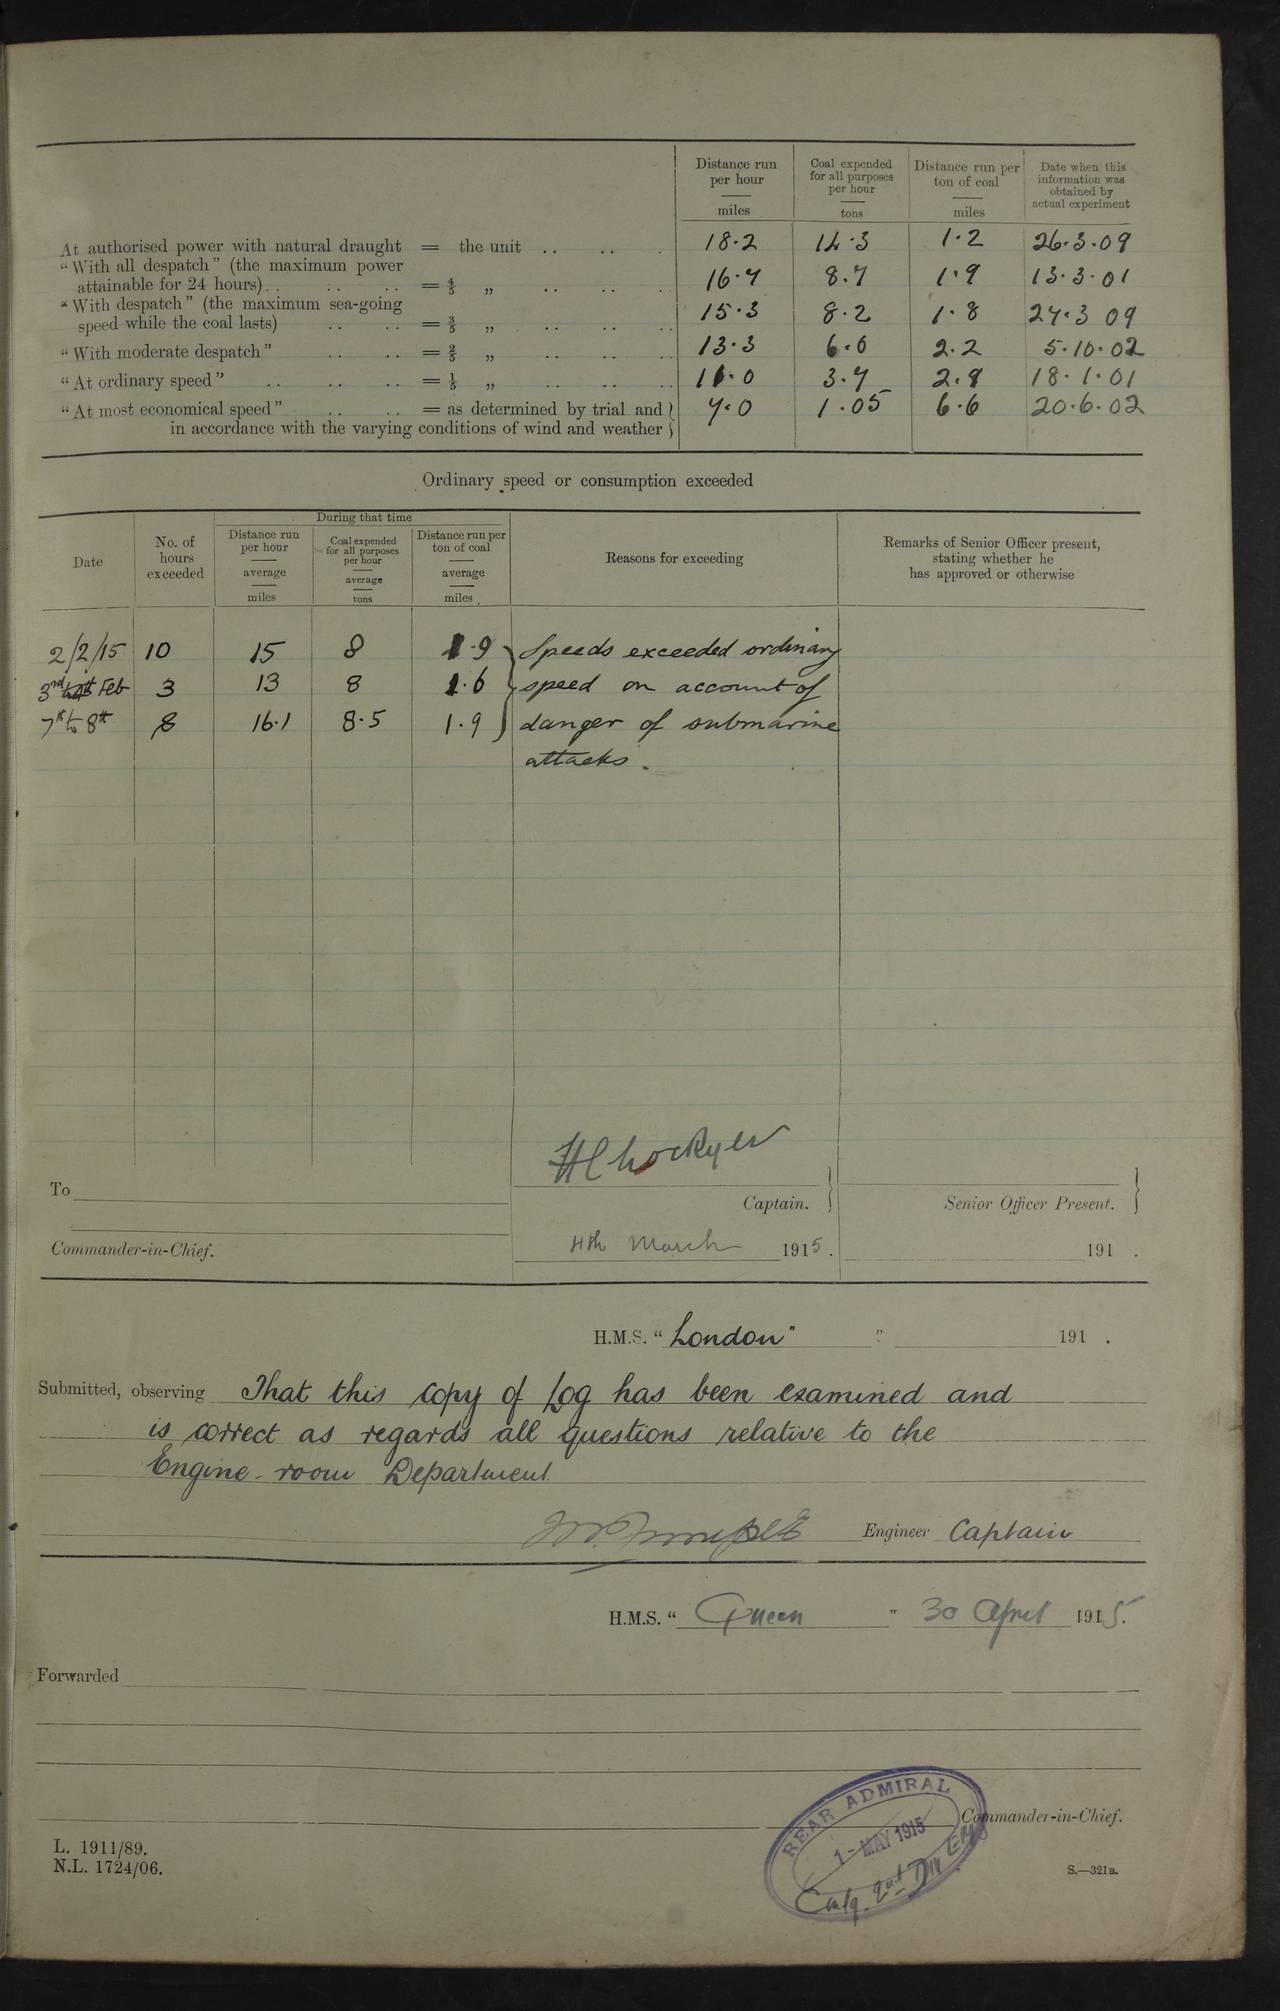 Distance run per hour miles
Coal expended for all purposes per hour tons
Distance run per ton of coal miles
Date when this information was obtained by actual experiment
At authorised power with natural draught = the unit .. .. . 18.2 14.3 1.2 26.3.09
"With all despatch" (the maximum power
attainable for 24 hours) .. .. .. = 4/5 „ .. .. .. 16.7 8.7 1.9 13.3.01
"With despatch" (the maximum sea-going
speed while the coal lasts) .. .. = 3/5 „ .. .. .. 15.3 8.2 1.8 27.3 09
"With moderate despatch" .. .. = 2/5 „ .. .. .. 13.3 6.0 2.2 5.10.02
"At ordinary speed" .. .. .. = 1/5 „ .. .. .. 11.0 3.7 2.9 18.1.01
"At most economical speed" .. .. = as determined by trial and 7.0 1.05 6.6 20.6.02
in accordance with the varying conditions of wind and weather
Ordinary speed or consumption exceeded
Date
No. of hours exceeded
During that time
Distance run per hour average miles
Coal expended for all purposes per hour average tons
Distance run per ton of coal average miles
Reasons for exceeding
Remarks of Senior Officer present, stating whether he has approved or otherwise
2/2/15 10 15 8 1.9 Speeds exceeded ordinary
3rd Feb 3 13 8 1.6 speed on account of
7th to 8th 8 16.1 8.5 1.9 danger of submarine
attacks.
HC Lockyer
To
Captain.
Senior Officer Present.
Commander-in-Chief.
4th March 1915.
191 .
H.M.S. "London" " 191 .
Submitted, observing That this copy of Log has been examined and
is correct as regards all questions relative to the
Engine-room Department
Engineer Captain
H.M.S. "Queen" 30 April 1915.
Forwarded
REAR ADMIRAL
1 - MAY 1915
Commander-in-Chief.
L. 1911/89.
N.L. 1724/06.
S.—321B.